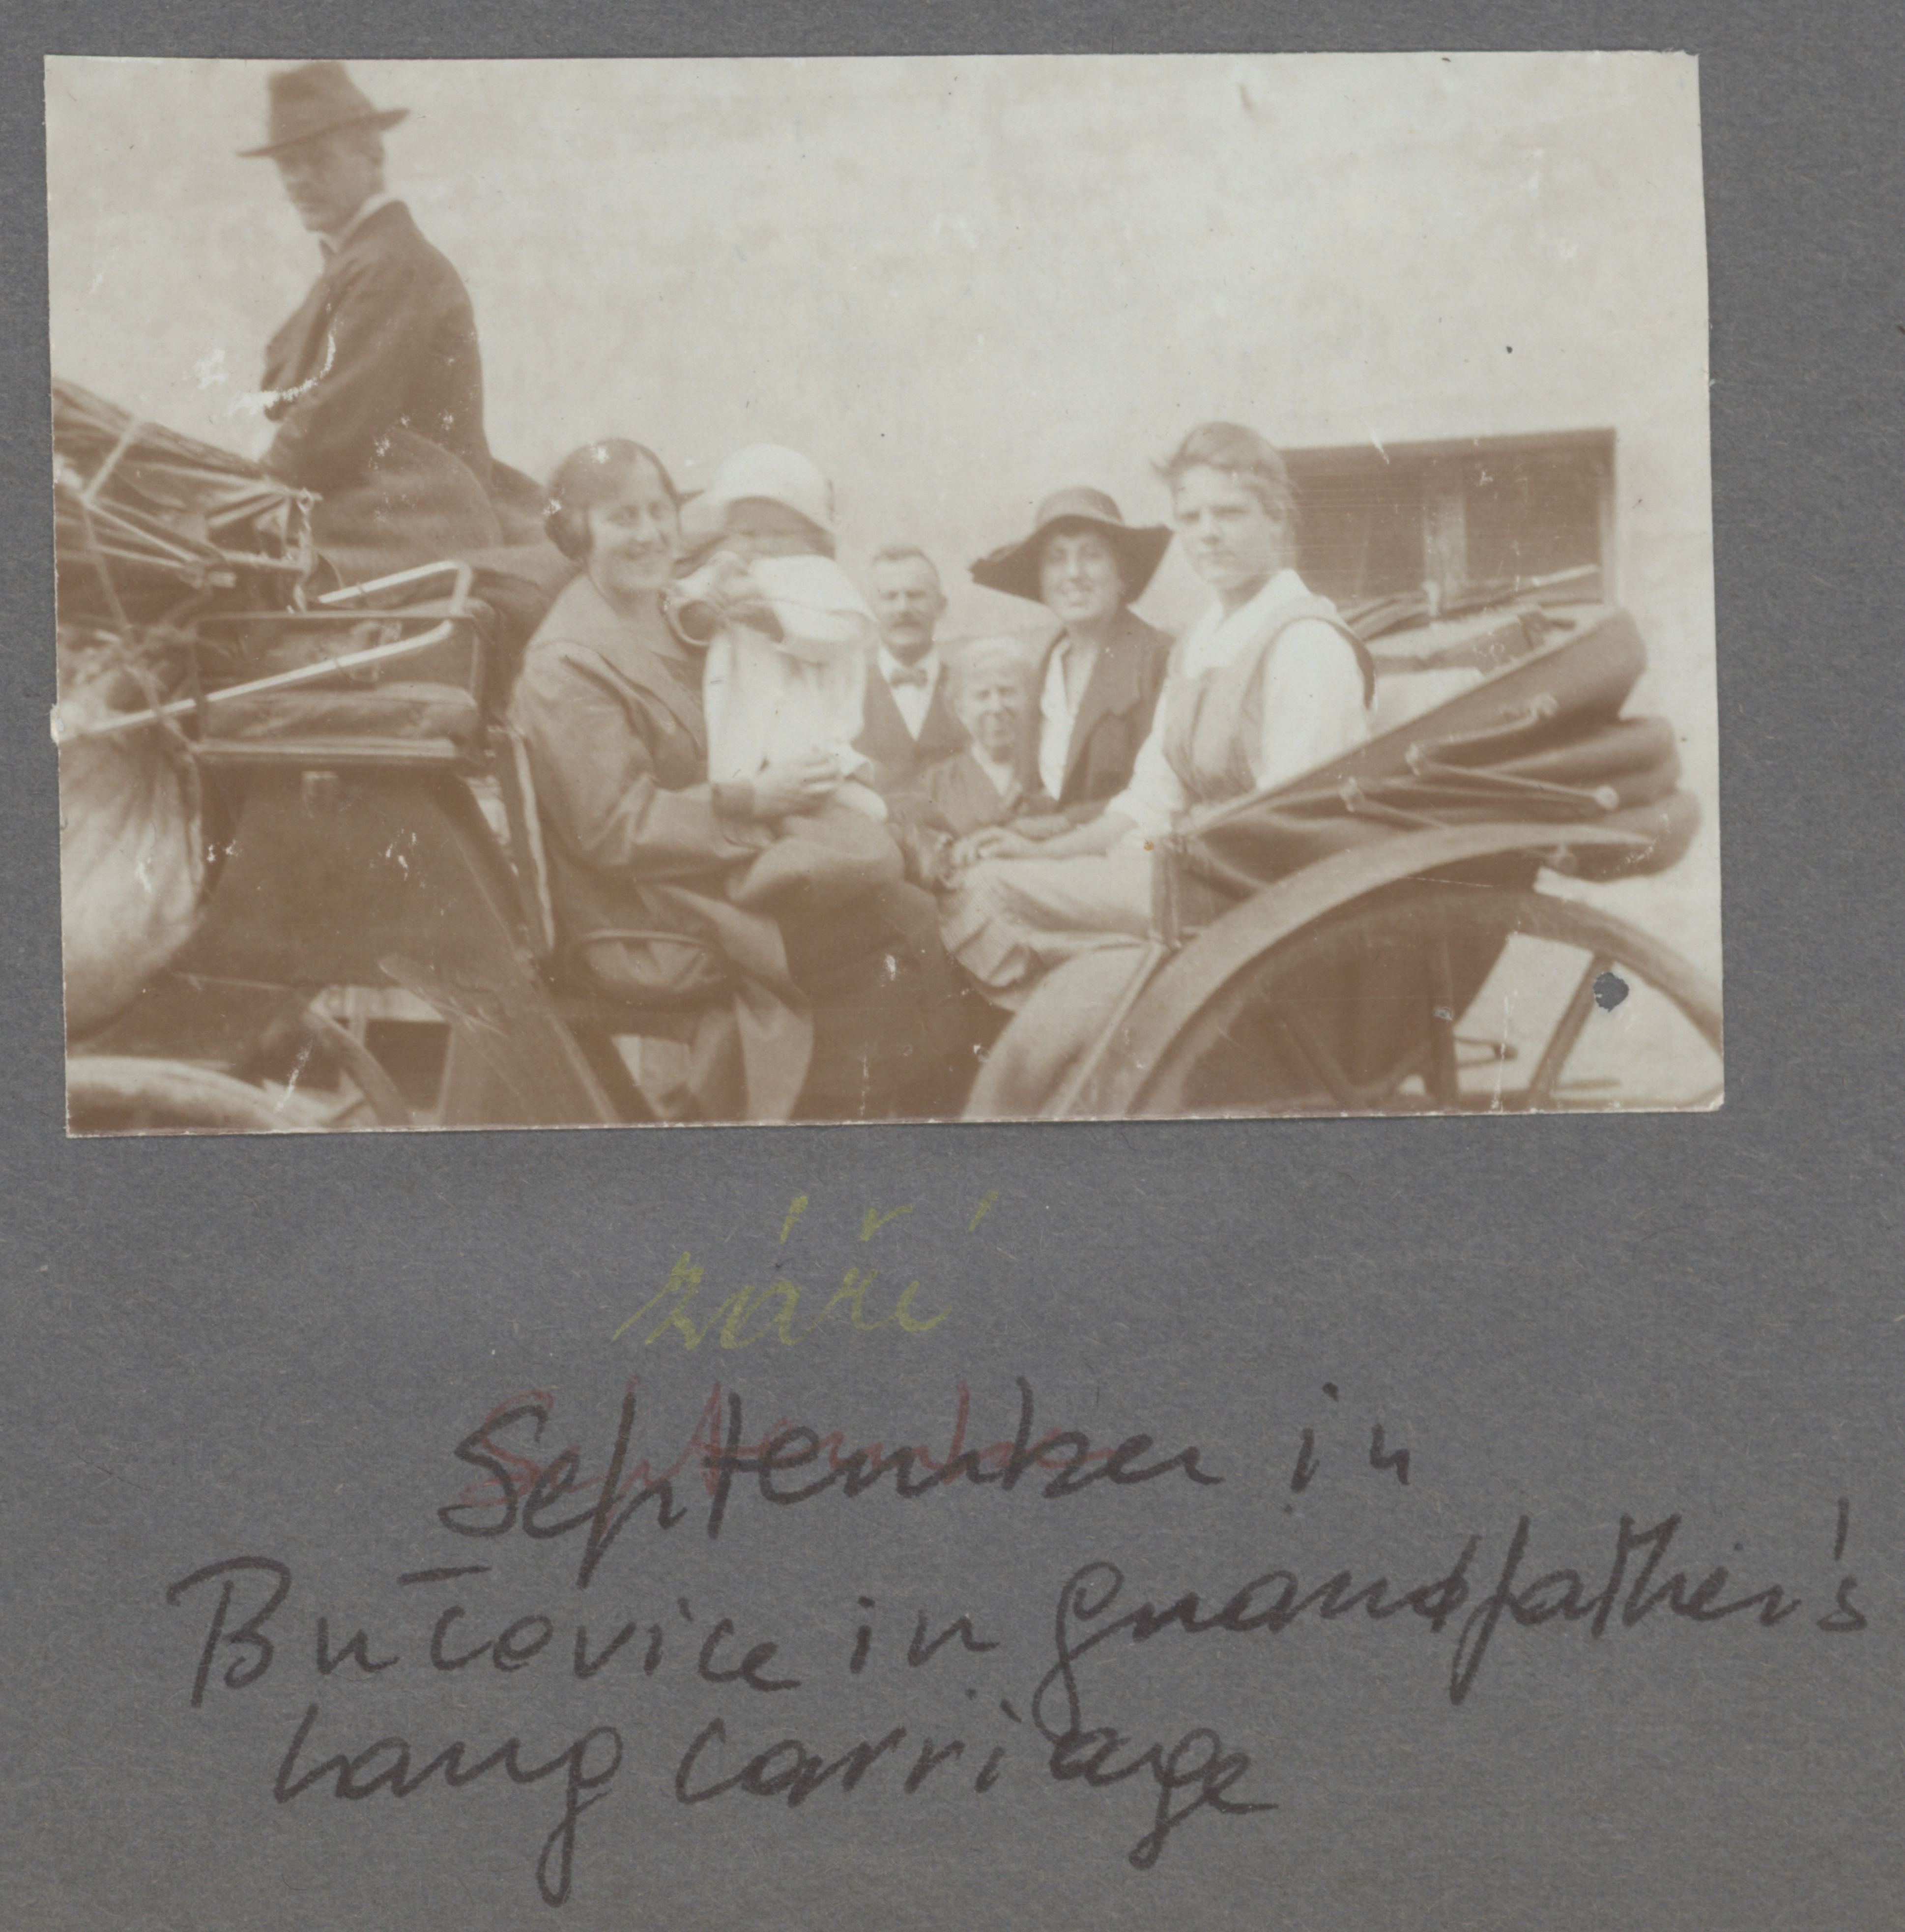 září
September in
Bučovice in grandfather's
Lang carriage